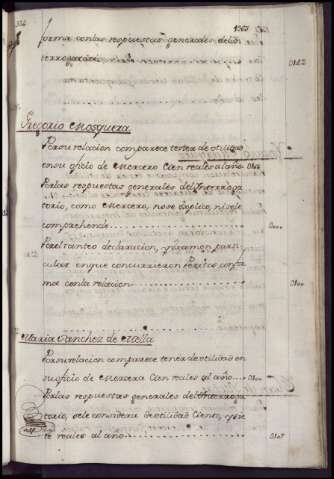 forma con las respuestas generales del In
terrogatorio
0122
Gregorio Mosquera
Por su relacion comparece tener de utilidad
en su oficio de Mercero Cien reales al año 0100
Por las respuestas generales del Ynterroga
torio, como Mercero, no se explica, ni se le
comprehende
0000
Por el tanteo declaracion, y juramon. parti
cular en que concurrieron Peritos confor
ma con la relacion
0100
Maria Sanchez de Mella
Por su relacion comparece tener de utilidad en
su oficio de Mercera Cien reales al año 0100
Por las respuestas generales del Ynterroga
torio, se le considera de utilidad Ciento, y sie
te reales al año
0107